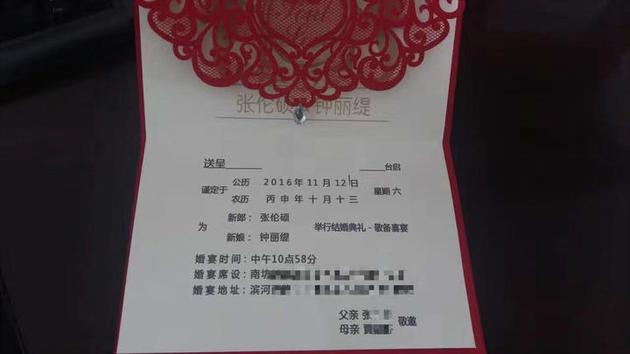 张伦硕 钟丽缇
送呈 台启
谨定于 公历 2016年11月12日 星期 六
农历 丙申年十月十三
为 新郎：张伦硕 举行结婚典礼-敬备喜宴
新娘：钟丽缇
婚宴时间：中午10点58分
婚宴席设：南坊
婚宴地址：滨河
父亲 张
母亲 敬邀